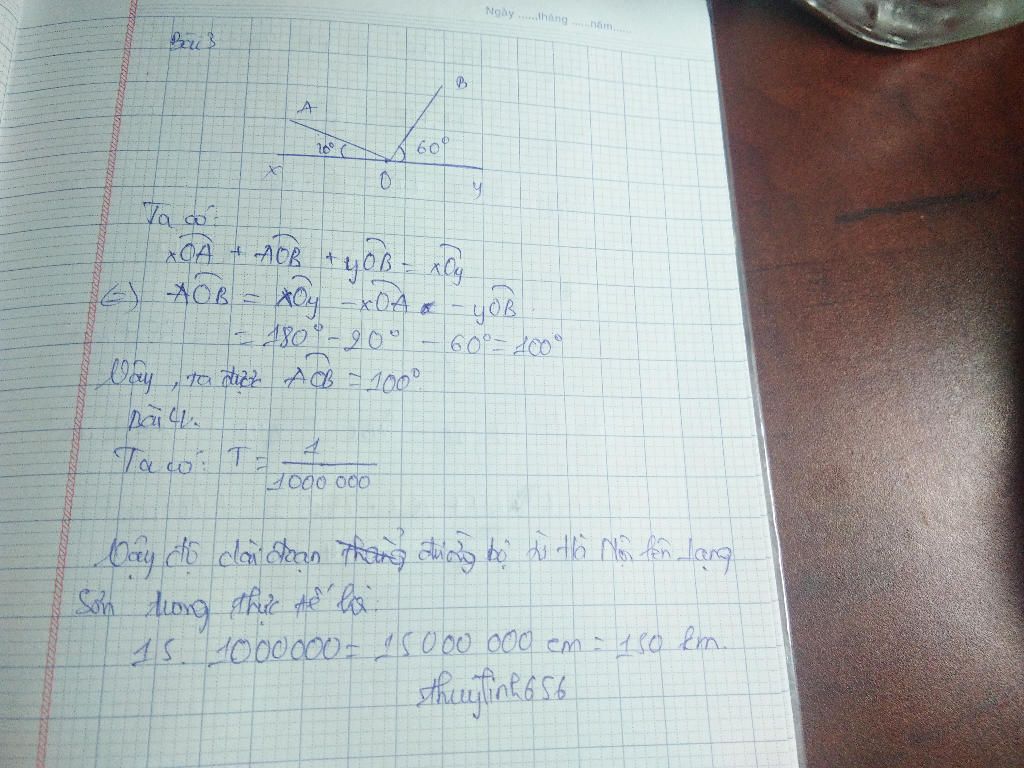 Ngày ......tháng ......năm......
Bài 3
A
B
20°
60°
x
O
y
Ta có:
xOA + AOB + yOB = xOy
(=) AOB = xOy - xOA - yOB
= 180° - 20° - 60° = 100°
Vậy, ta được AOB = 100°
Bài 4.
Ta có: T = 1
1000 000
Vậy độ dài đoạn đường bộ từ Hà Nội lên Lạng
Sơn trong thực tế là:
15. 1000000 = 15000 000 cm = 150 km.
thuylinh656